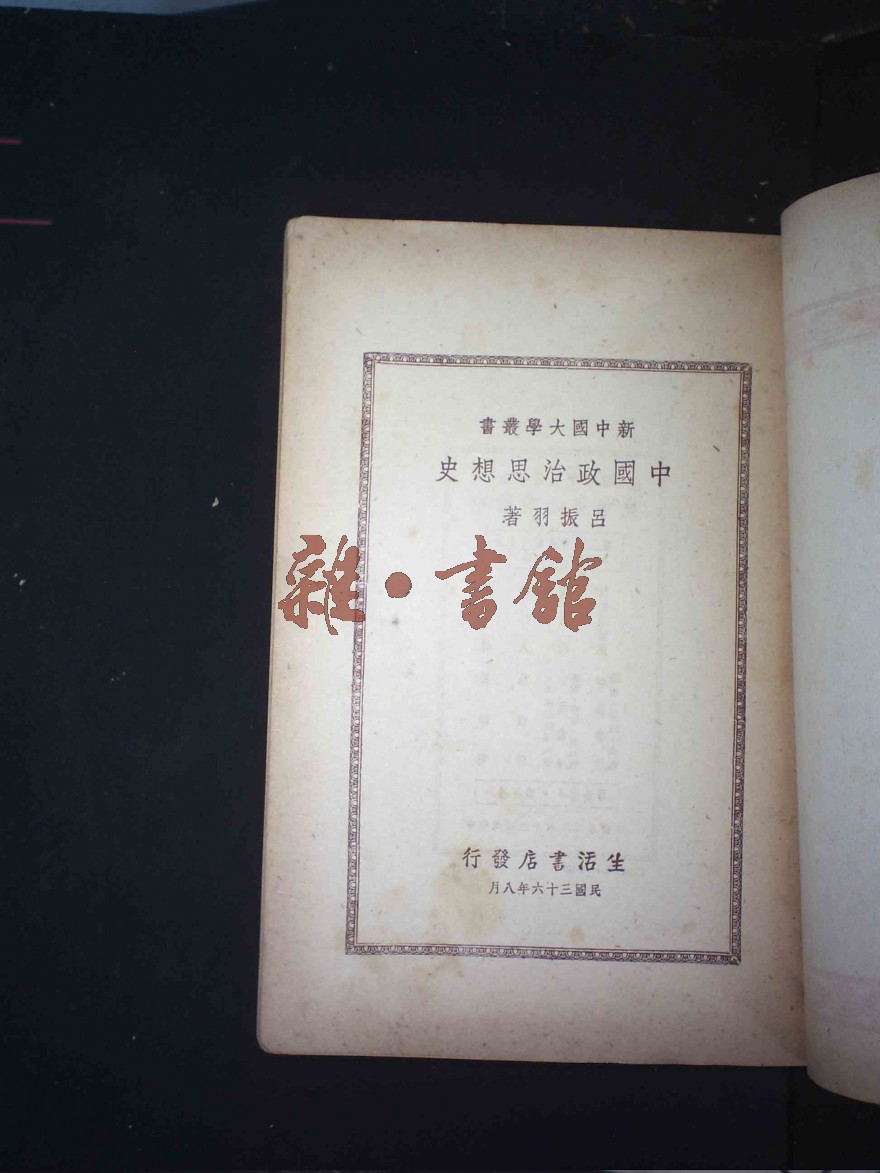 新中國大學叢書
中國政治思想史
呂振羽著
雜·書館
生活書店發行
民國三十六年八月